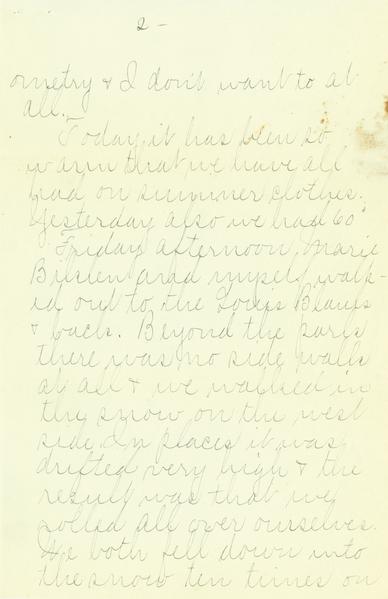 2 -
ometry & I don't want to at
all.
Today it has been so
warm that we have all
had on summer clothes.
Yesterday also we had 60°
Friday afternoon, Marie
and myself walk-
ed out to the Louis
& back. Beyond the park
there was no side walk
at all & we walked in
the snow on the west
side. In places it was
drifted very high & the
result was that we
rolled all over ourselves.
We both fell down into
the snow ten times on